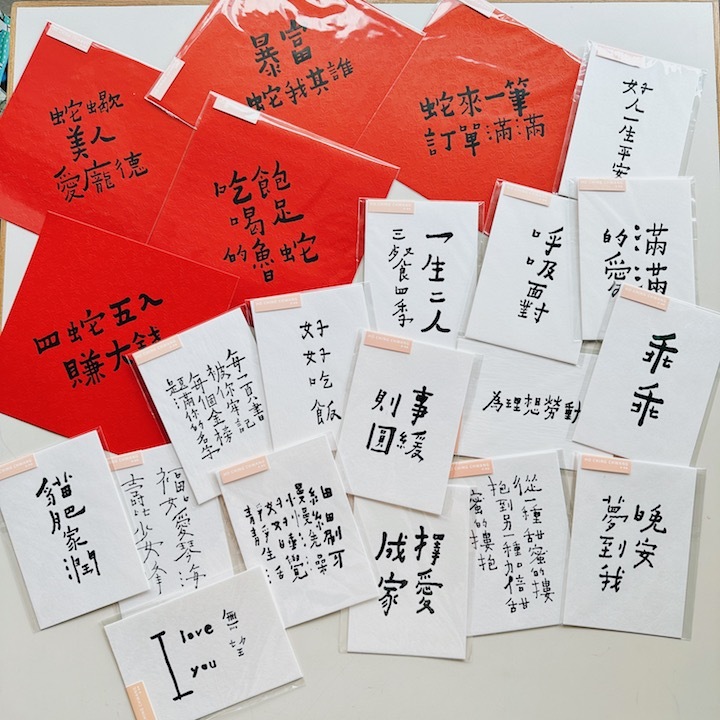 蛇蠍
美人
愛龐德
暴富
蛇我其誰
蛇來一筆
訂單滿滿
好人一生平安
吃飽
喝足
的魯蛇
一生二人
三餐四季
呼吸面對
滿滿
的愛
四蛇五入
賺大錢
每一頁書
被你筆記
每個金榜
題滿你的名字
好好吃飯
事緩
則圓
為理想勞動
乖乖
貓肥家潤
福如愛琴海
壽比少女峰
細細刷牙
慢慢洗澡
好好睡覺
生活
擇愛
成家
從一種甜蜜的摟
抱到另一種加倍甜
蜜的摟抱
晚安
夢到我
I love
you
無望